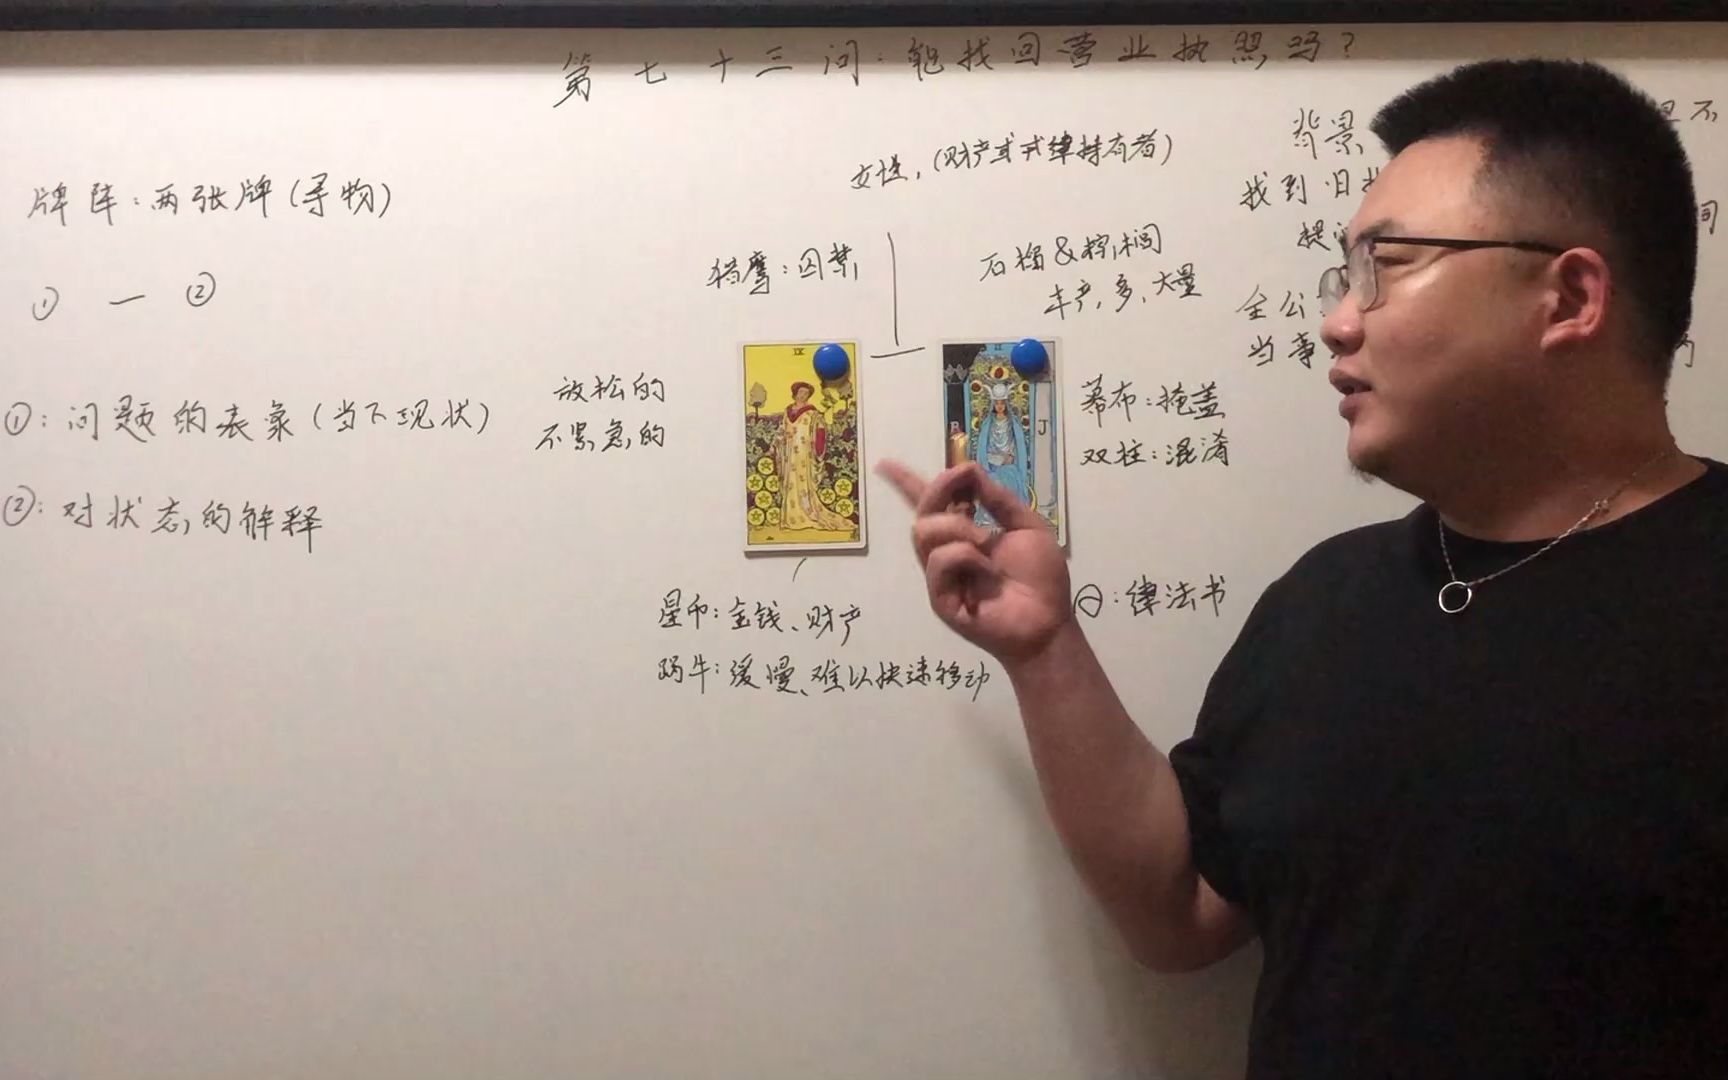 第七十三问：能找回营业执照吗？
牌阵：两张牌（寻物）
① — ②
①：问题的表象（当下现状）
②：对状态的解释
女性，（财产或法律持有者）
猎鹰：囚禁
石榴&棕榈
丰产，多，大量
放松的
不紧急的
IX
II
B
J
幕布：掩盖
双柱：混淆
星币：金钱、财产
蜗牛：缓慢、难以快速移动
：律法书
背景
不
找到旧
提
间
全公
当事